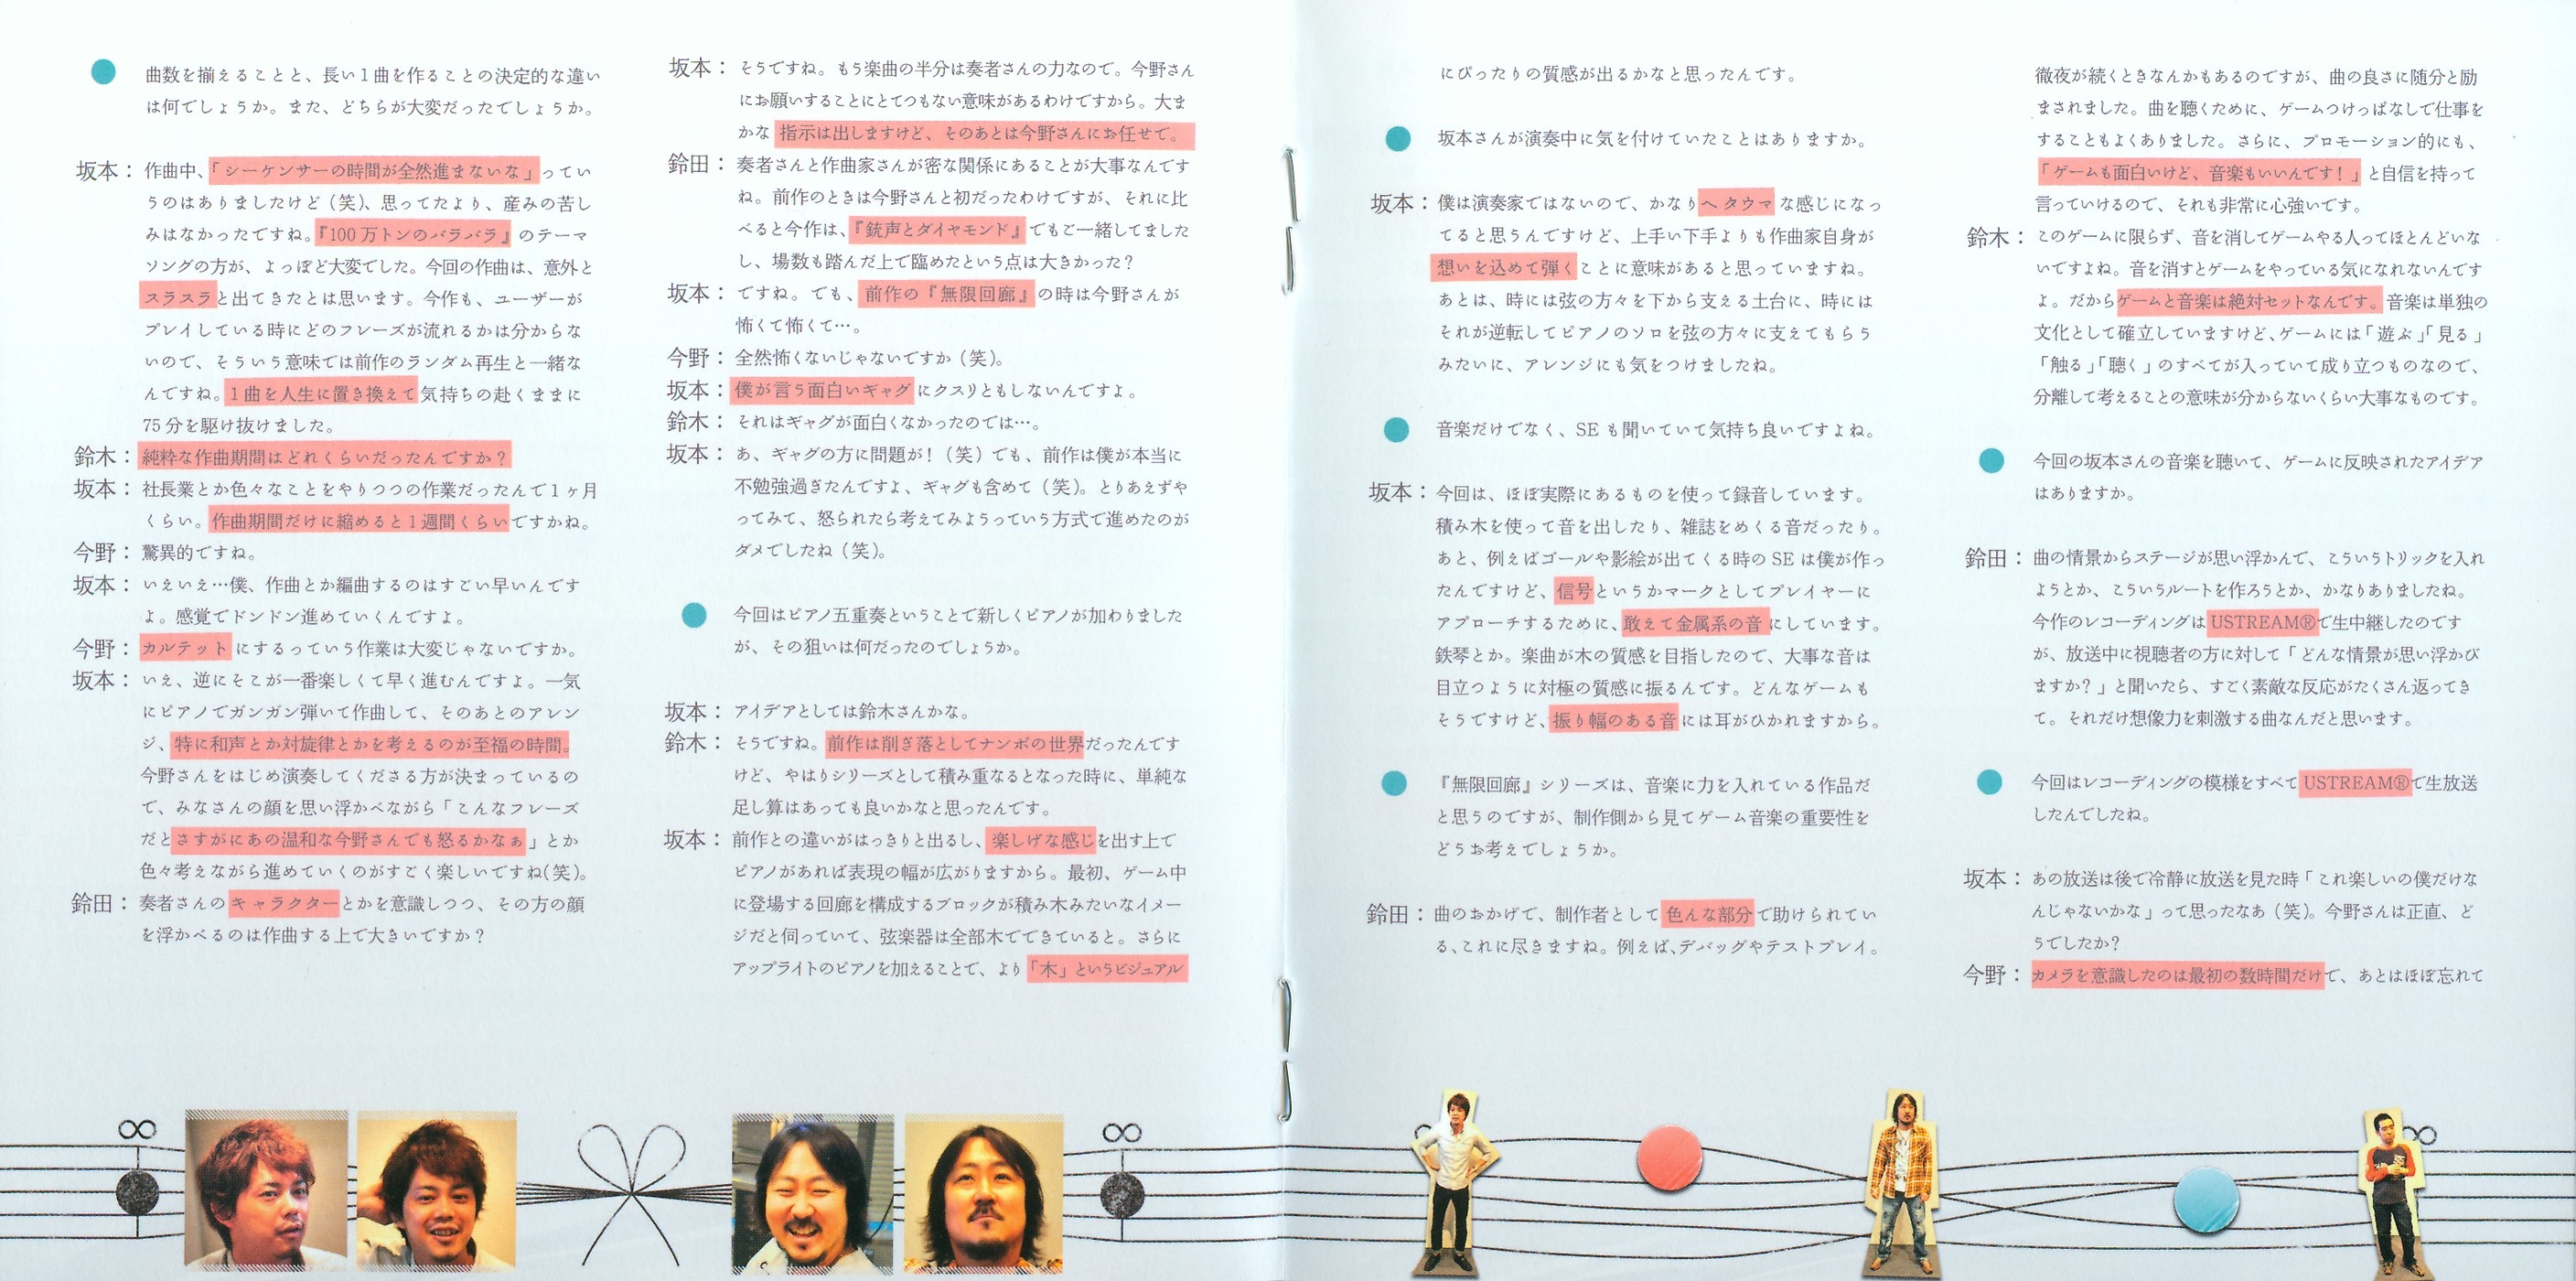 曲数を揃えることと、長い1曲を作ることの決定的な違い
は何でしょうか。また、どちらが大変だったでしょうか。
坂本：作曲中、「シーケンサーの時間が全然進まないな」ってい
うのはありましたけど（笑）、思ってたより、産みの苦し
みはなかったですね。『100万トンのバラバラ』のテーマ
ソングの方が、よっぽど大変でした。今回の作曲は、意外と
スラスラと出てきたとは思います。今作も、ユーザーが
プレイしている時にどのフレーズが流れるかは分からな
いので、そういう意味では前作のランダム再生と一緒な
んですね。1曲を人生に置き換えて気持ちの赴くままに
75分を駆け抜けました。
鈴木：純粋な作曲期間はどれくらいだったんですか？
坂本：社長業とか色々なことをやりつつの作業だったんで1ヶ月
くらい。作曲期間だけに縮めると1週間くらいですかね。
今野：驚異的ですね。
坂本：いえいえ…僕、作曲とか編曲するのはすごい早いんです
よ。感覚でドンドン進めていくんですよ。
今野：カルテットにするっていう作業は大変じゃないですか。
坂本：いえ、逆にそこが一番楽しくて早く進むんですよ。一気
にピアノでガンガン弾いて作曲して、そのあとのアレン
ジ、特に和声とか対旋律とかを考えるのが至福の時間。
今野さんをはじめ演奏してくださる方が決まっているの
で、みなさんの顔を思い浮かべながら「こんなフレーズ
だとさすがにあの温和な今野さんでも怒るかなぁ」とか
色々考えながら進めていくのがすごく楽しいですね（笑）。
鈴田：奏者さんのキャラクターとかを意識しつつ、その方の顔
を浮かべるのは作曲する上で大きいですか？
坂本：そうですね。もう楽曲の半分は奏者さんの力なので。今野さん
にお願いすることにとてつもない意味があるわけですから。大ま
かな指示は出しますけど、そのあとは今野さんにお任せで。
鈴田：奏者さんと作曲家さんが密な関係にあることが大事なんです
ね。前作のときは今野さんと初だったわけですが、それに比
べると今作は、『銃声とダイヤモンド』でもご一緒してました
し、場数も踏んだ上で臨めたという点は大きかった？
坂本：ですね。でも、前作の『無限回廊』の時は今野さんが
怖くて怖くて…。
今野：全然怖くないじゃないですか（笑）。
坂本：僕が言う面白いギャグにクスリともしないんですよ。
鈴木：それはギャグが面白くなかったのでは…。
坂本：あ、ギャグの方に問題が！（笑）でも、前作は僕が本当に
不勉強過ぎたんですよ、ギャグも含めて（笑）。とりあえずや
ってみて、怒られたら考えてみようっていう方式で進めたのが
ダメでしたね（笑）。
今回はピアノ五重奏ということで新しくピアノが加わりました
が、その狙いは何だったのでしょうか。
坂本：アイデアとしては鈴木さんかな。
鈴木：そうですね。前作は削ぎ落としてナンボの世界だったんです
けど、やはりシリーズとして積み重なるとなった時に、単純な
足し算はあっても良いかなと思ったんです。
坂本：前作との違いがはっきりと出るし、楽しげな感じを出す上で
ピアノがあれば表現の幅が広がりますから。最初、ゲーム中
に登場する回廊を構成するブロックが積み木みたいなイメー
ジだと伺っていて、弦楽器は全部木でできていると。さらに
アップライトのピアノを加えることで、より「木」というビジュアル
にぴったりの質感が出るかなと思ったんです。
坂本さんが演奏中に気を付けていたことはありますか。
坂本：僕は演奏家ではないので、かなりヘタウマな感じになっ
てると思うんですけど、上手い下手よりも作曲家自身が
想いを込めて弾くことに意味があると思っていますね。
あとは、時には弦の方々を下から支える土台に、時には
それが逆転してピアノのソロを弦の方々に支えてもらう
みたいに、アレンジにも気をつけましたね。
音楽だけでなく、SEも聞いていて気持ち良いですよね。
坂本：今回は、ほぼ実際にあるものを使って録音しています。
積み木を使って音を出したり、雑誌をめくる音だったり。
あと、例えばゴールや影絵が出てくる時のSEは僕が作っ
たんですけど、信号というかマークとしてプレイヤーに
アプローチするために、敢えて金属系の音にしています。
鉄琴とか。楽曲が木の質感を目指したので、大事な音は
目立つように対極の質感に振るんです。どんなゲームも
そうですけど、振り幅のある音には耳がひかれますから。
『無限回廊』シリーズは、音楽に力を入れている作品だ
と思うのですが、制作側から見てゲーム音楽の重要性を
どうお考えでしょうか。
鈴田：曲のおかげで、制作者として色んな部分で助けられてい
る、これに尽きますね。例えば、デバッグやテストプレイ。
徹夜が続くときなんかもあるのですが、曲の良さに随分と励
まされました。曲を聴くために、ゲームつけっぱなしで仕事を
することもよくありました。さらに、プロモーション的にも、
「ゲームも面白いけど、音楽もいいんです！」と自信を持って
言っていけるので、それも非常に心強いです。
鈴木：このゲームに限らず、音を消してゲームやる人ってほとんどいな
いですよね。音を消すとゲームをやっている気になれないんです
よ。だからゲームと音楽は絶対セットなんです。音楽は単独の
文化として確立していますけど、ゲームには「遊ぶ」「見る」
「触る」「聴く」のすべてが入っていて成り立つものなので、
分離して考えることの意味が分からないくらい大事なものです。
今回の坂本さんの音楽を聴いて、ゲームに反映されたアイデア
はありますか。
鈴田：曲の情景からステージが思い浮かんで、こういうトリックを入れ
ようとか、こういうルートを作ろうとか、かなりありましたね。
今作のレコーディングはUSTREAM®で生中継したのです
が、放送中に視聴者の方に対して「どんな情景が思い浮かび
ますか？」と聞いたら、すごく素敵な反応がたくさん返ってき
て。それだけ想像力を刺激する曲なんだと思います。
今回はレコーディングの模様をすべてUSTREAM®で生放送
したんでしたね。
坂本：あの放送は後で冷静に放送を見た時「これ楽しいの僕だけな
んじゃないかな」って思ったなあ（笑）。今野さんは正直、ど
うでしたか？
今野：カメラを意識したのは最初の数時間だけで、あとはほぼ忘れて